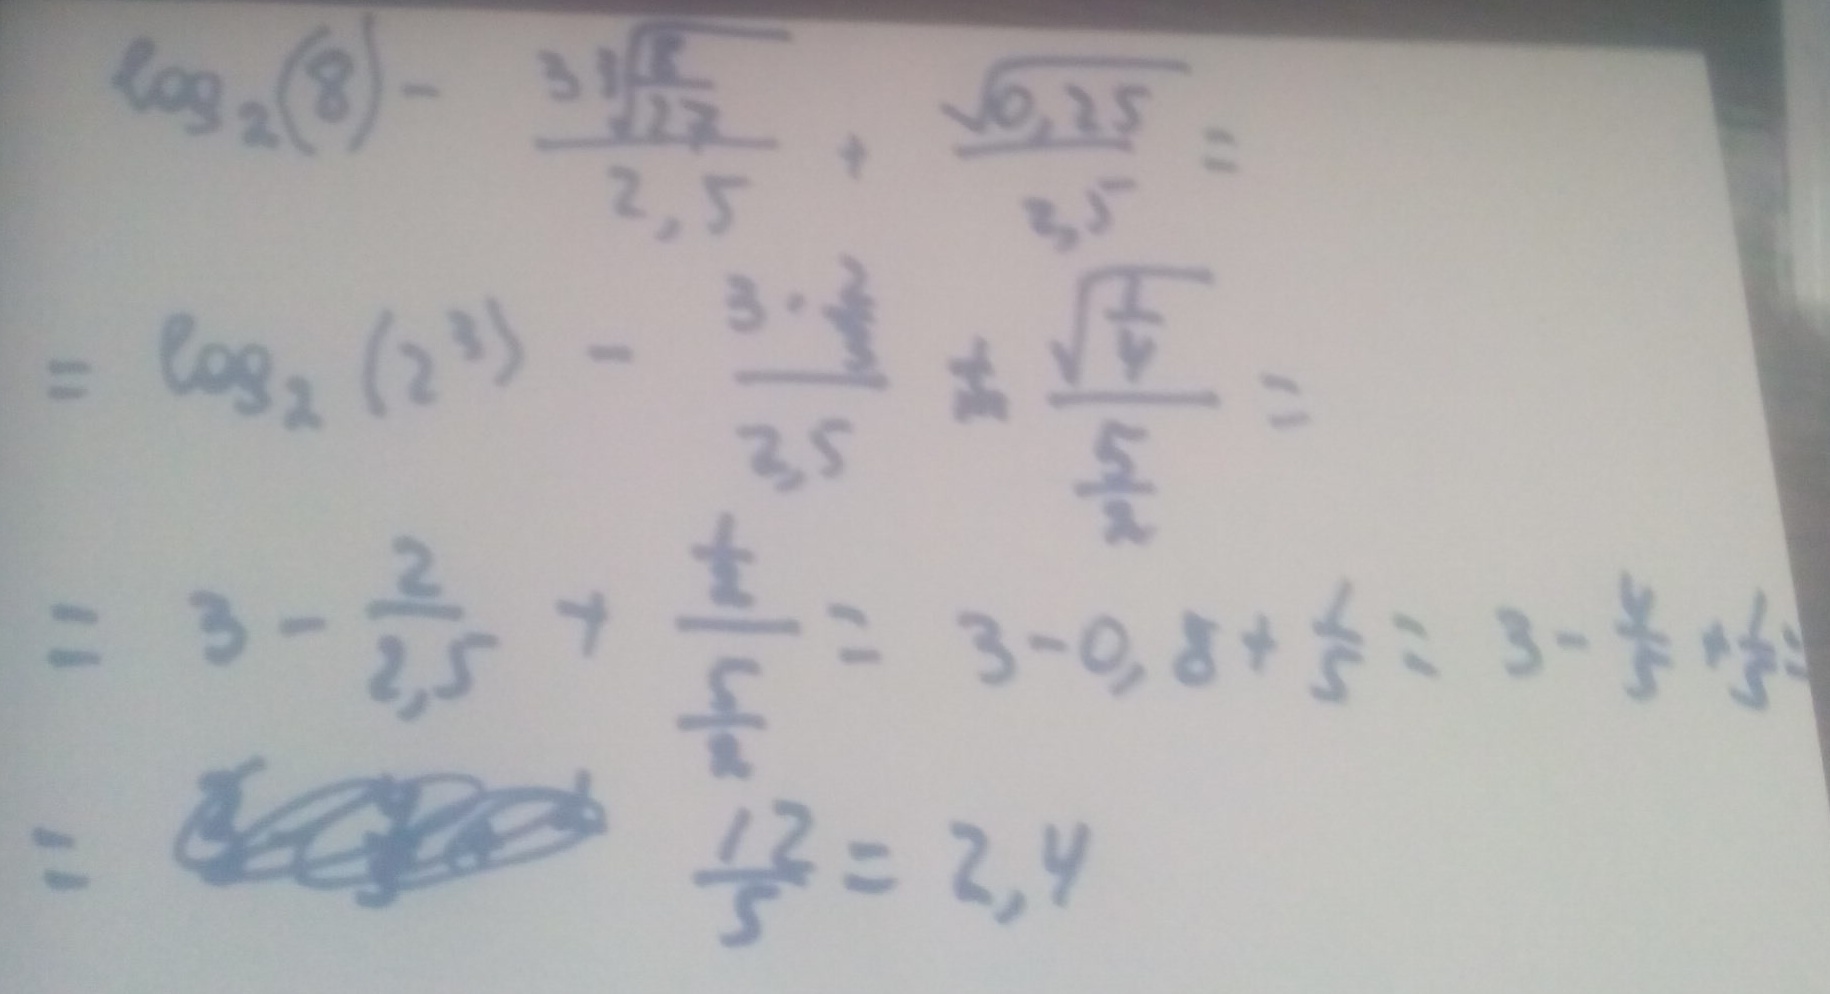 log₂(8) - (3∛(8/27))/(2,5) + √(0,25)/(2,5) =
= log₂(2³) - (3·2/3)/(2,5) + √(1/4)/(5/2) =
= 3 - 2/(2,5) + (1/2)/(5/2) = 3 - 0,8 + 1/5 = 3 - 4/5 + 1/5 =
= 12/5 = 2,4